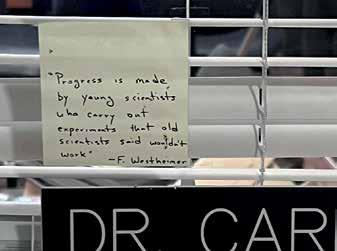 "Progress is made
by young scientists
who carry out
experiments that old
scientists said wouldn't
work"
-F. Westheimer
DR. CAR